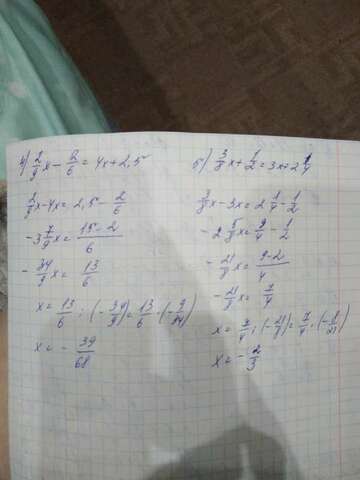 а) 2/9 x - 2/6 = 4x + 2,5
2/9 x - 4x = 2,5 - 2/6
- 3 7/9 x = (15 - 2)/6
- 34/9 x = 13/6
x = 13/6 : (- 34/9) = 13/6 · (- 9/34)
x = - 39/68
б) 3/8 x + 1/2 = 3x + 2 1/4
3/8 x - 3x = 2 1/4 - 1/2
- 2 5/8 x = 9/4 - 1/2
- 21/8 x = (9 - 2)/4
- 21/8 x = 7/4
x = 7/4 : (- 21/8) = 7/4 · (- 8/21)
x = - 2/3